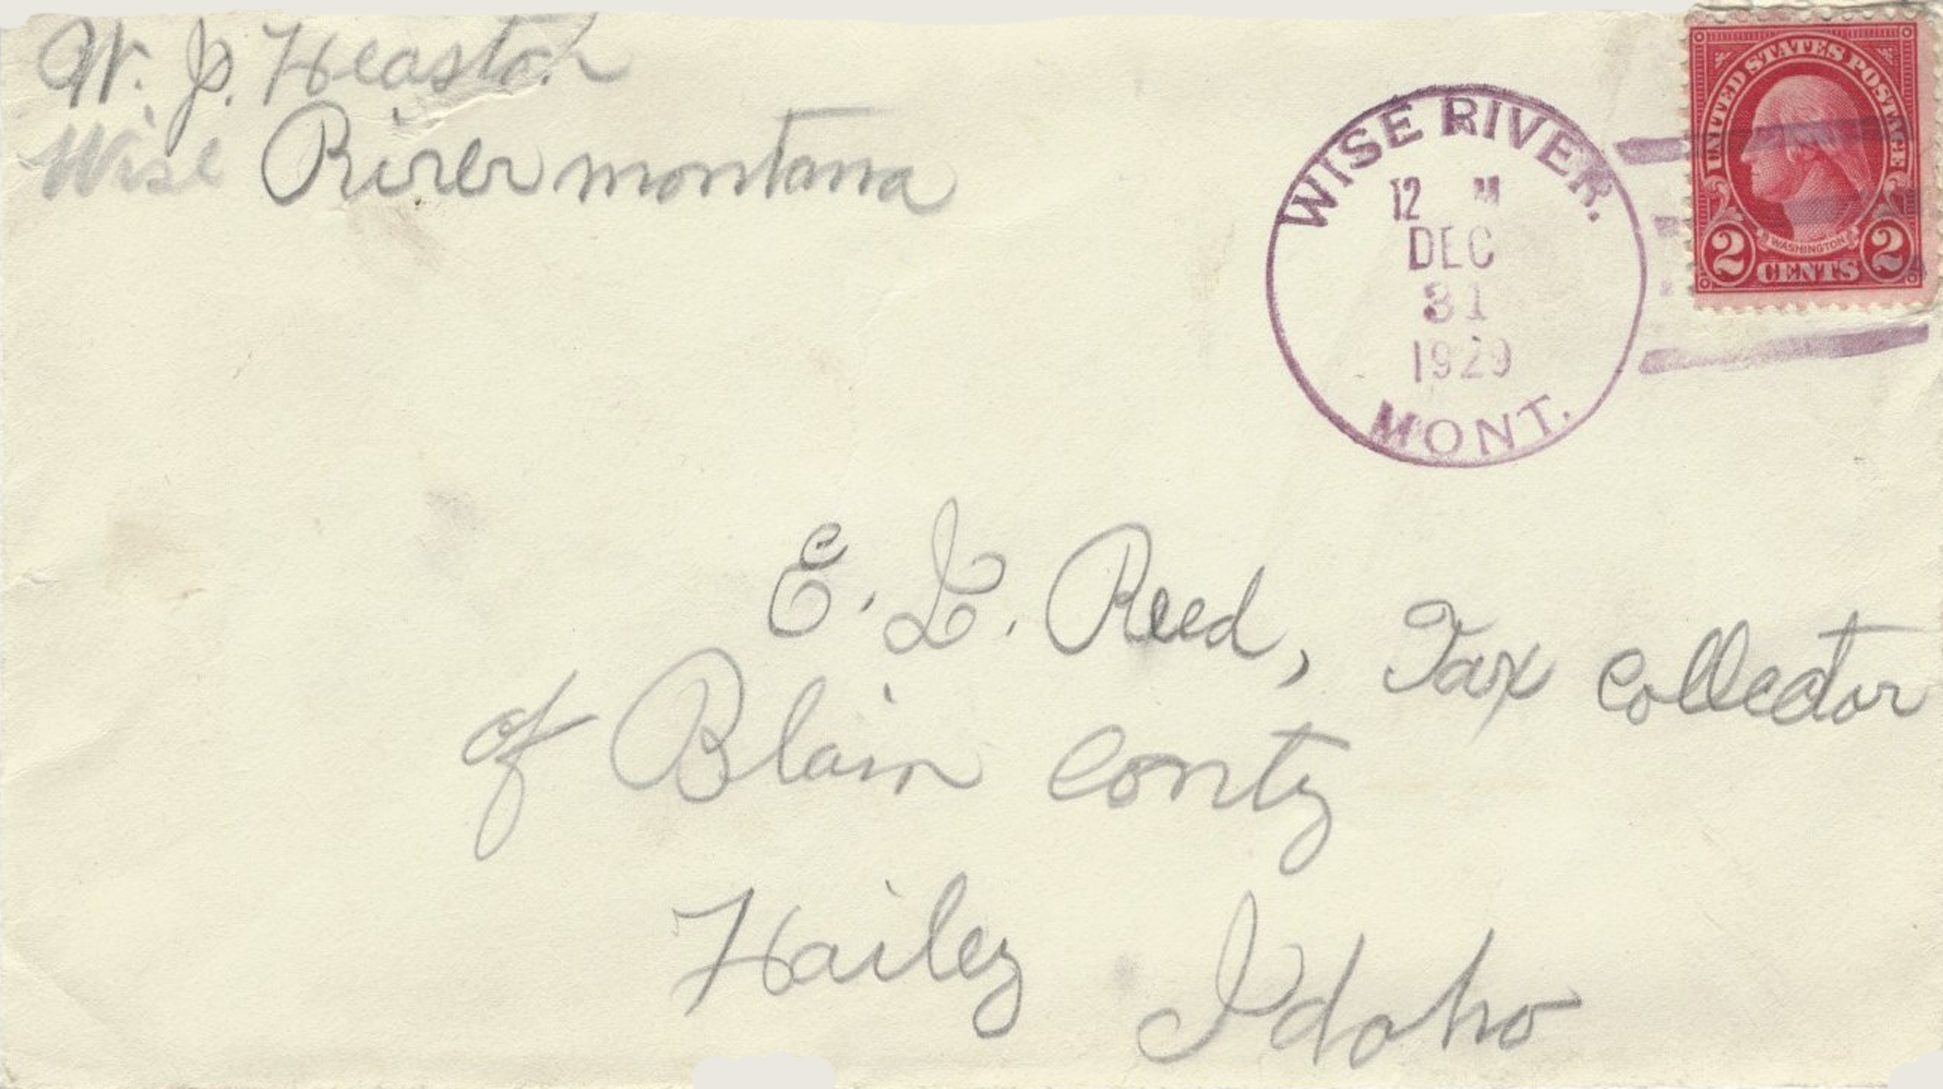 W. P. Heaston
Wise River montana
WISE RIVER.
12 M
DEC
31
1929
MONT.
UNITED STATES POSTAGE
WASHINGTON
2 CENTS 2
E. L. Reed, Tax collector
of Blain conty
Hailey Idoho